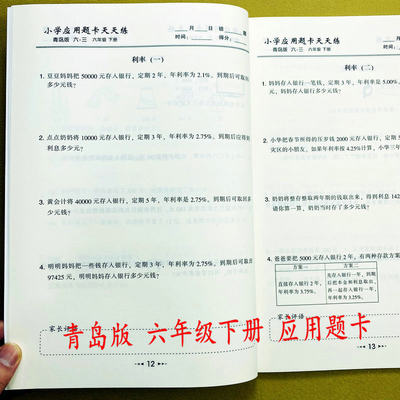 小学应用题卡天天练
青岛版 六·三 六年级 下册
月 日
时间: 得分:
利率 (一)
1. 豆豆妈妈把 50000 元存入银行，定期 2 年，年利率为 2.1%，到期后可取回
多少元钱?
2. 点点奶奶将 10000 元存入银行，定期 3 年，年利率为 2.75%，到期后应得利
息多少元?
3. 黄会计将 40000 元存入银行，定期 5 年，年利率为 2.75%，到期后可取
多少元钱?
4. 明明妈妈把一些钱存入银行，定期 3 年，年利率为 2.75%，到期后
97425 元，明明妈妈存入银行多少元钱?
家长评语:
12
小学应用题卡天天练
青岛版 六·三 六年级 下册
时间:
利率 (二)
1. 妈妈存入银行一笔钱，定期 3 年，到期
率为 5.00%，妈妈存入银行多少元?
2. 小华把春节所得的压岁钱 2000 元存入银行，定
灾区的小朋友，如果年利率按 4.25%计算，小华三年
3. 奶奶将整存整取两年期的钱取出来，得到利息 142
请你算一算，奶奶当时存了多少元钱?
4. 爸爸要把 5000 元存入银行 2 年，有两种存款方案
方案一 方案二
直接存入银行 2 年，
年利率为 3.75%。
先存入银行一年，到期
后把本金和利息取出，
再一起存入银行一年，
年利率为 3.25%。
家长评语:
13
青岛版 六年级下册 应用题卡